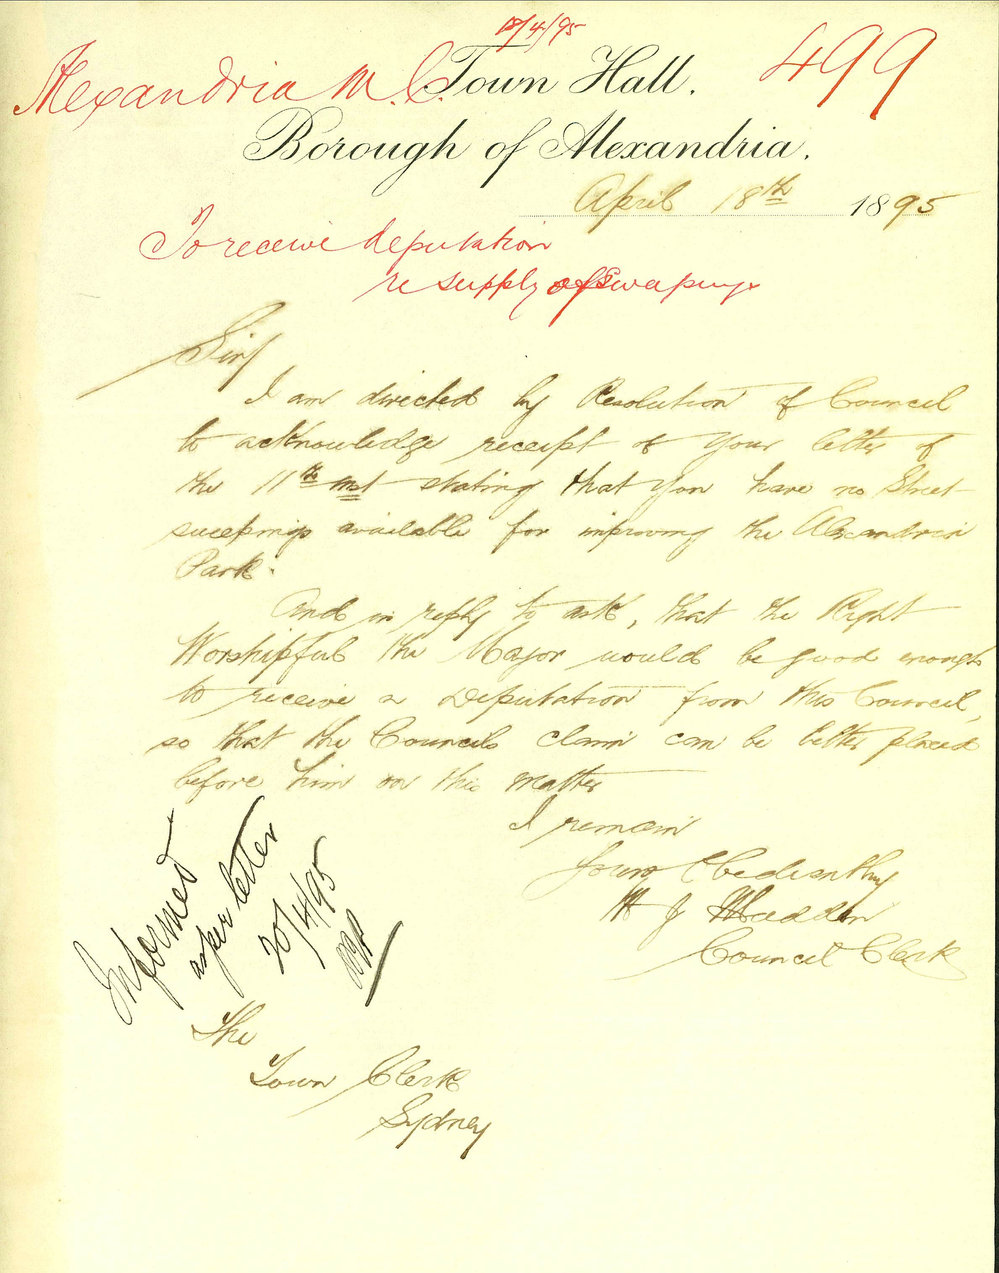 18/4/95
Alexandria M.C.
499
Town Hall.
Borough of Alexandria.
April 18th 1895
To receive deputation
re supply of Sweepings
Sir/
I am directed by Resolution of Council
to acknowledge receipt of your letter of
the 11th inst stating that you have no Street
sweepings available for improving the Alexandria
Park.
And in reply to ask, that the Right
Worshipful the Mayor would be good enough
to receive a Deputation from this Council,
so that the Councils claim can be better placed
before him on this matter
I remain
Yours Obediently
M J Madden
Council Clerk
Informed
as per letter
20/4/95
The
Town Clerk
Sydney